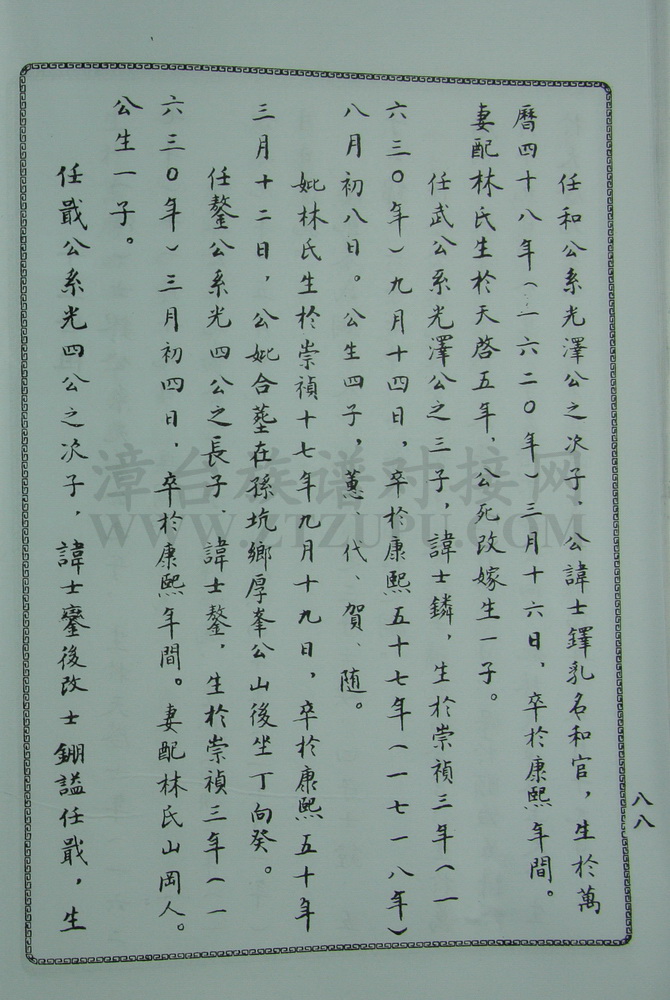 任和公系光澤公之次子、公諱士鐸乳名和官，生於萬
曆四十八年（一六二〇年）三月十六日，卒於康熙年間。
妻配林氏生於天啓五年，公死改嫁生一子。
任武公系光澤公之三子，諱士鏻，生於崇禎三年（一
六三〇年）九月十四日，卒於康熙五十七年（一七一八年）
八月初八日。公生四子，蕙、代、賀、随。
妣林氏生於崇禎十七年九月十九日，卒於康熙五十年
三月十二日，公妣合墓在孫坑鄉厚峯公山後坐丁向癸。
任鏊公系光四公之長子、諱士鏊，生於崇禎三年（一
六三〇年）三月初四日，卒於康熙年間。妻配林氏山岡人。
公生一子。
任戢公系光四公之次子，諱士鑾後改士鎙謚任戢，生
八八
漳台族谱对接网
WWW.ZTZUPU.COM